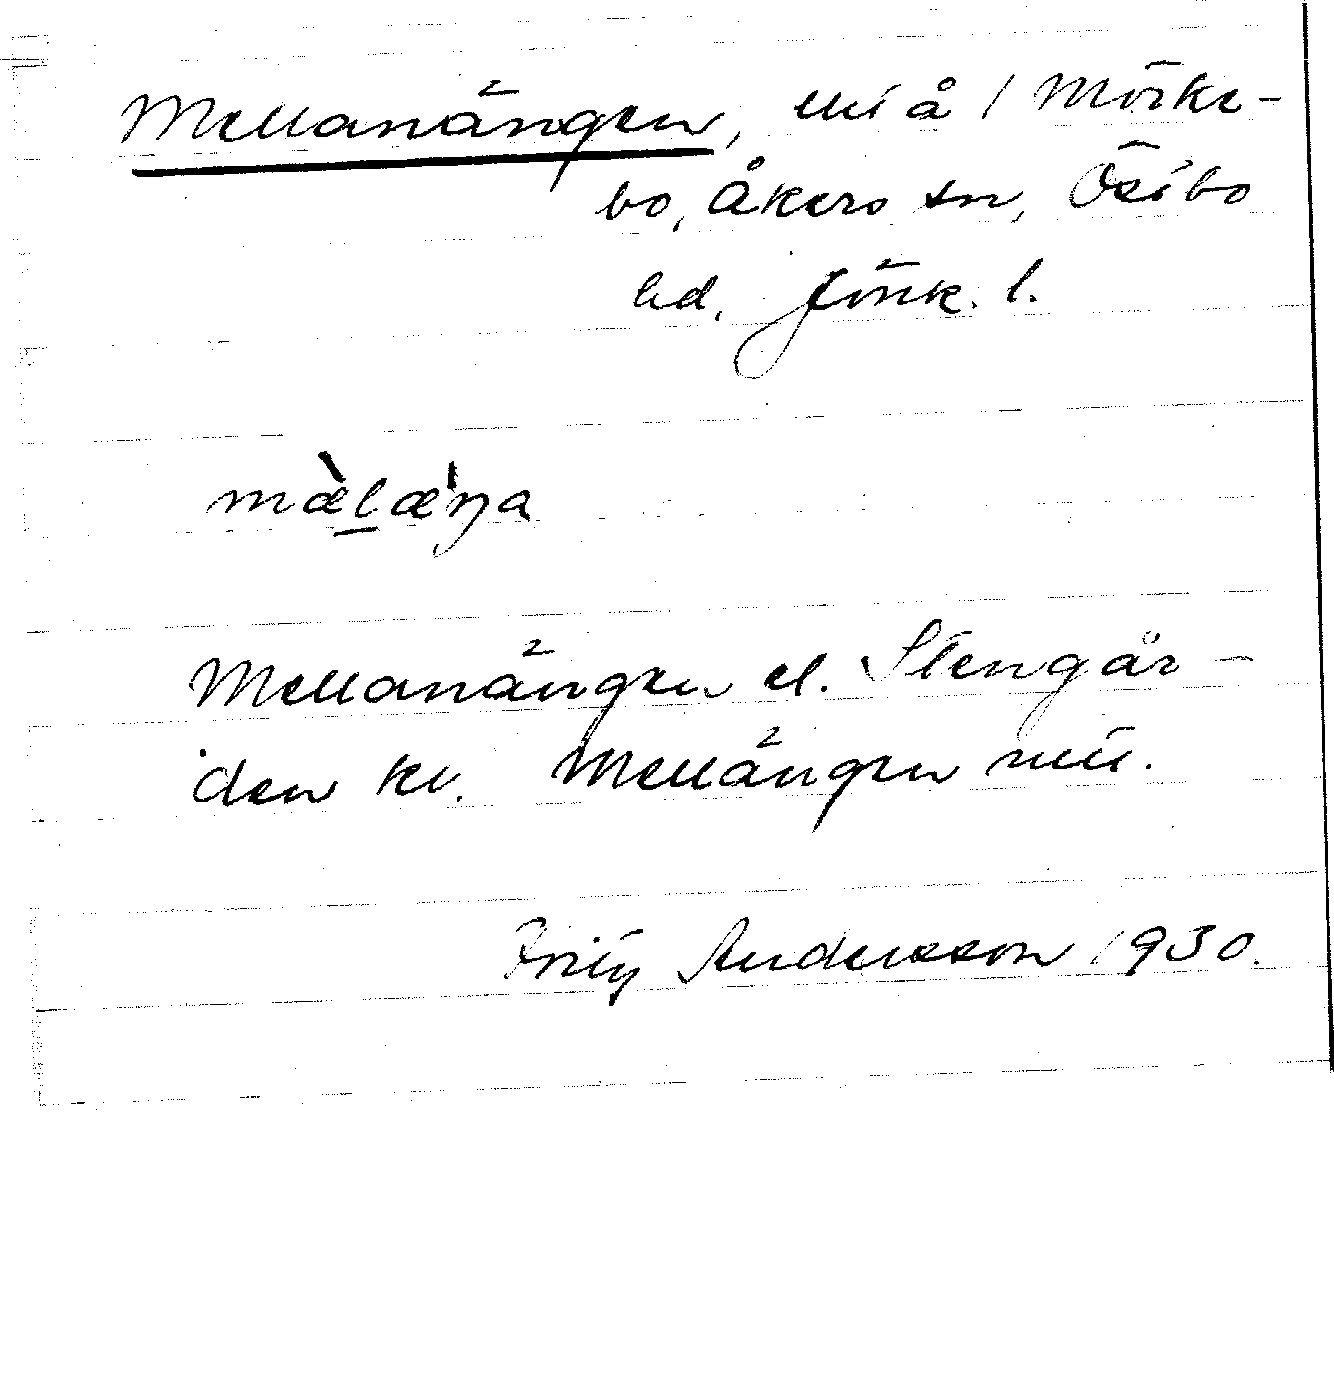 Mellanängen, till å 1 Mörke-
bo, Åkers sn, Östbo
hd, Jönk. l.
mæ̀læ'ŋa
Mellanängen el. Stengår-
den kv. Mellängen
Andersson 1930.